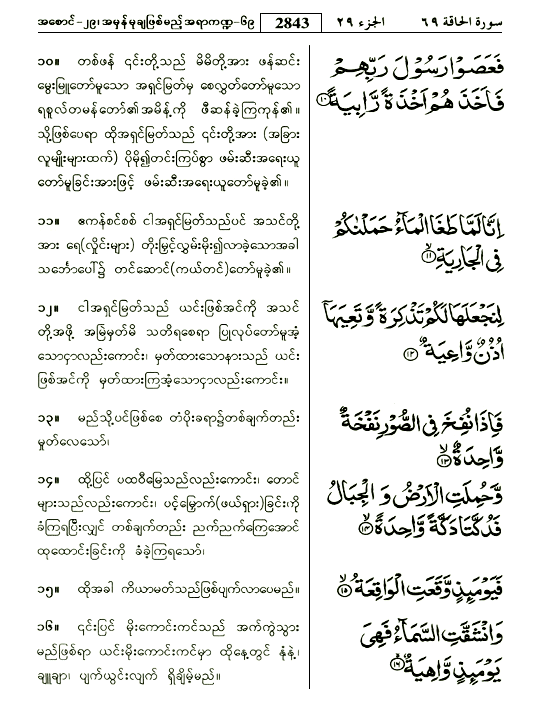 အစောင်-၂၉၊အမှန်မုချဖြစ်မည့်အရာကဏ္ဍ-၆၉ 2843 الجزء ٢٩ سورة الحاقة ٦٩
၁၀။ တစ်ဖန် ၎င်းတို့သည် မိမိတို့အား ဖန်ဆင်း
မွေးမြူတော်မူသော အရှင်မြတ်မှ စေလွှတ်တော်မူသော
ရစူလ်တမန်တော်၏အမိန့်ကို ဖီဆန်ခဲ့ကြကုန်၏။
သို့ဖြစ်ပေရာ ထိုအရှင်မြတ်သည် ၎င်းတို့အား (အခြား
လူမျိုးများထက်) ပိုမို၍တင်းကြပ်စွာ ဖမ်းဆီးအရေးယူ
တော်မူခြင်းအားဖြင့် ဖမ်းဆီးအရေးယူတော်မူခဲ့၏။
فَعَصَوْا رَسُوْلَ رَبِّهِمْ
فَاَخَذَهُمْ اَخْذَةً رَّابِيَةً ١٠
၁၁။ ဧကန်စင်စစ် ငါအရှင်မြတ်သည်ပင် အသင်တို့
အား ရေ(လှိုင်းများ) တိုးမြှင့်လွှမ်းမိုး၍လာခဲ့သောအခါ
သင်္ဘောပေါ်၌ တင်ဆောင်(ကယ်တင်)တော်မူခဲ့၏။
اِنَّا لَمَّا طَغَا الْمَآءُ حَمَلْنٰكُمْ
فِي الْجَارِيَةِ ١١
၁၂။ ငါအရှင်မြတ်သည် ယင်းဖြစ်အင်ကို အသင်
တို့အဖို့ အမြဲမှတ်မိ သတိရစေရာ ပြုလုပ်တော်မူအံ့
သောငှာလည်းကောင်း၊ မှတ်ထားသောနားသည် ယင်း
ဖြစ်အင်ကို မှတ်ထားကြအံ့သောငှာလည်းကောင်း။
لِنَجْعَلَهَا لَكُمْ تَذْكِرَةً وَّتَعِيَهَآ
اُذُنٌ وَّاعِيَةٌ ١٢
၁၃။ မည်သို့ပင်ဖြစ်စေ တံပိုးခရာ၌တစ်ချက်တည်း
မှုတ်လေသော်၊
فَاِذَا نُفِخَ فِي الصُّوْرِ نَفْخَةٌ
وَّاحِدَةٌ ١٣
၁၄။ ထို့ပြင် ပထဝီမြေသည်လည်းကောင်း၊ တောင်
များသည်လည်းကောင်း၊ ပင့်မြှောက်(ဖယ်ရှား)ခြင်း၊ကို
ခံကြရပြီးလျှင် တစ်ချက်တည်း ညက်ညက်ကြေအောင်
ထုထောင်းခြင်းကို ခံခဲ့ကြရသော်၊
وَّحُمِلَتِ الْاَرْضُ وَ الْجِبَالُ
فَدُكَّتَا دَكَّةً وَّاحِدَةً ١٤
၁၅။ ထိုအခါ ကိယာမတ်သည်ဖြစ်ပျက်လာပေမည်။
فَيَوْمَئِذٍ وَّقَعَتِ الْوَاقِعَةُ ١٥
၁၆။ ၎င်းပြင် မိုးကောင်းကင်သည် အက်ကွဲသွား
မည်ဖြစ်ရာ ယင်းမိုးကောင်းကင်မှာ ထိုနေ့တွင် နုံနဲ့၊
ချူချာ၊ ပျက်ယွင်းလျက် ရှိချိမ့်မည်။
وَانْشَقَّتِ السَّمَآءُ فَهِيَ
يَوْمَئِذٍ وَّاهِيَةٌ ١٦